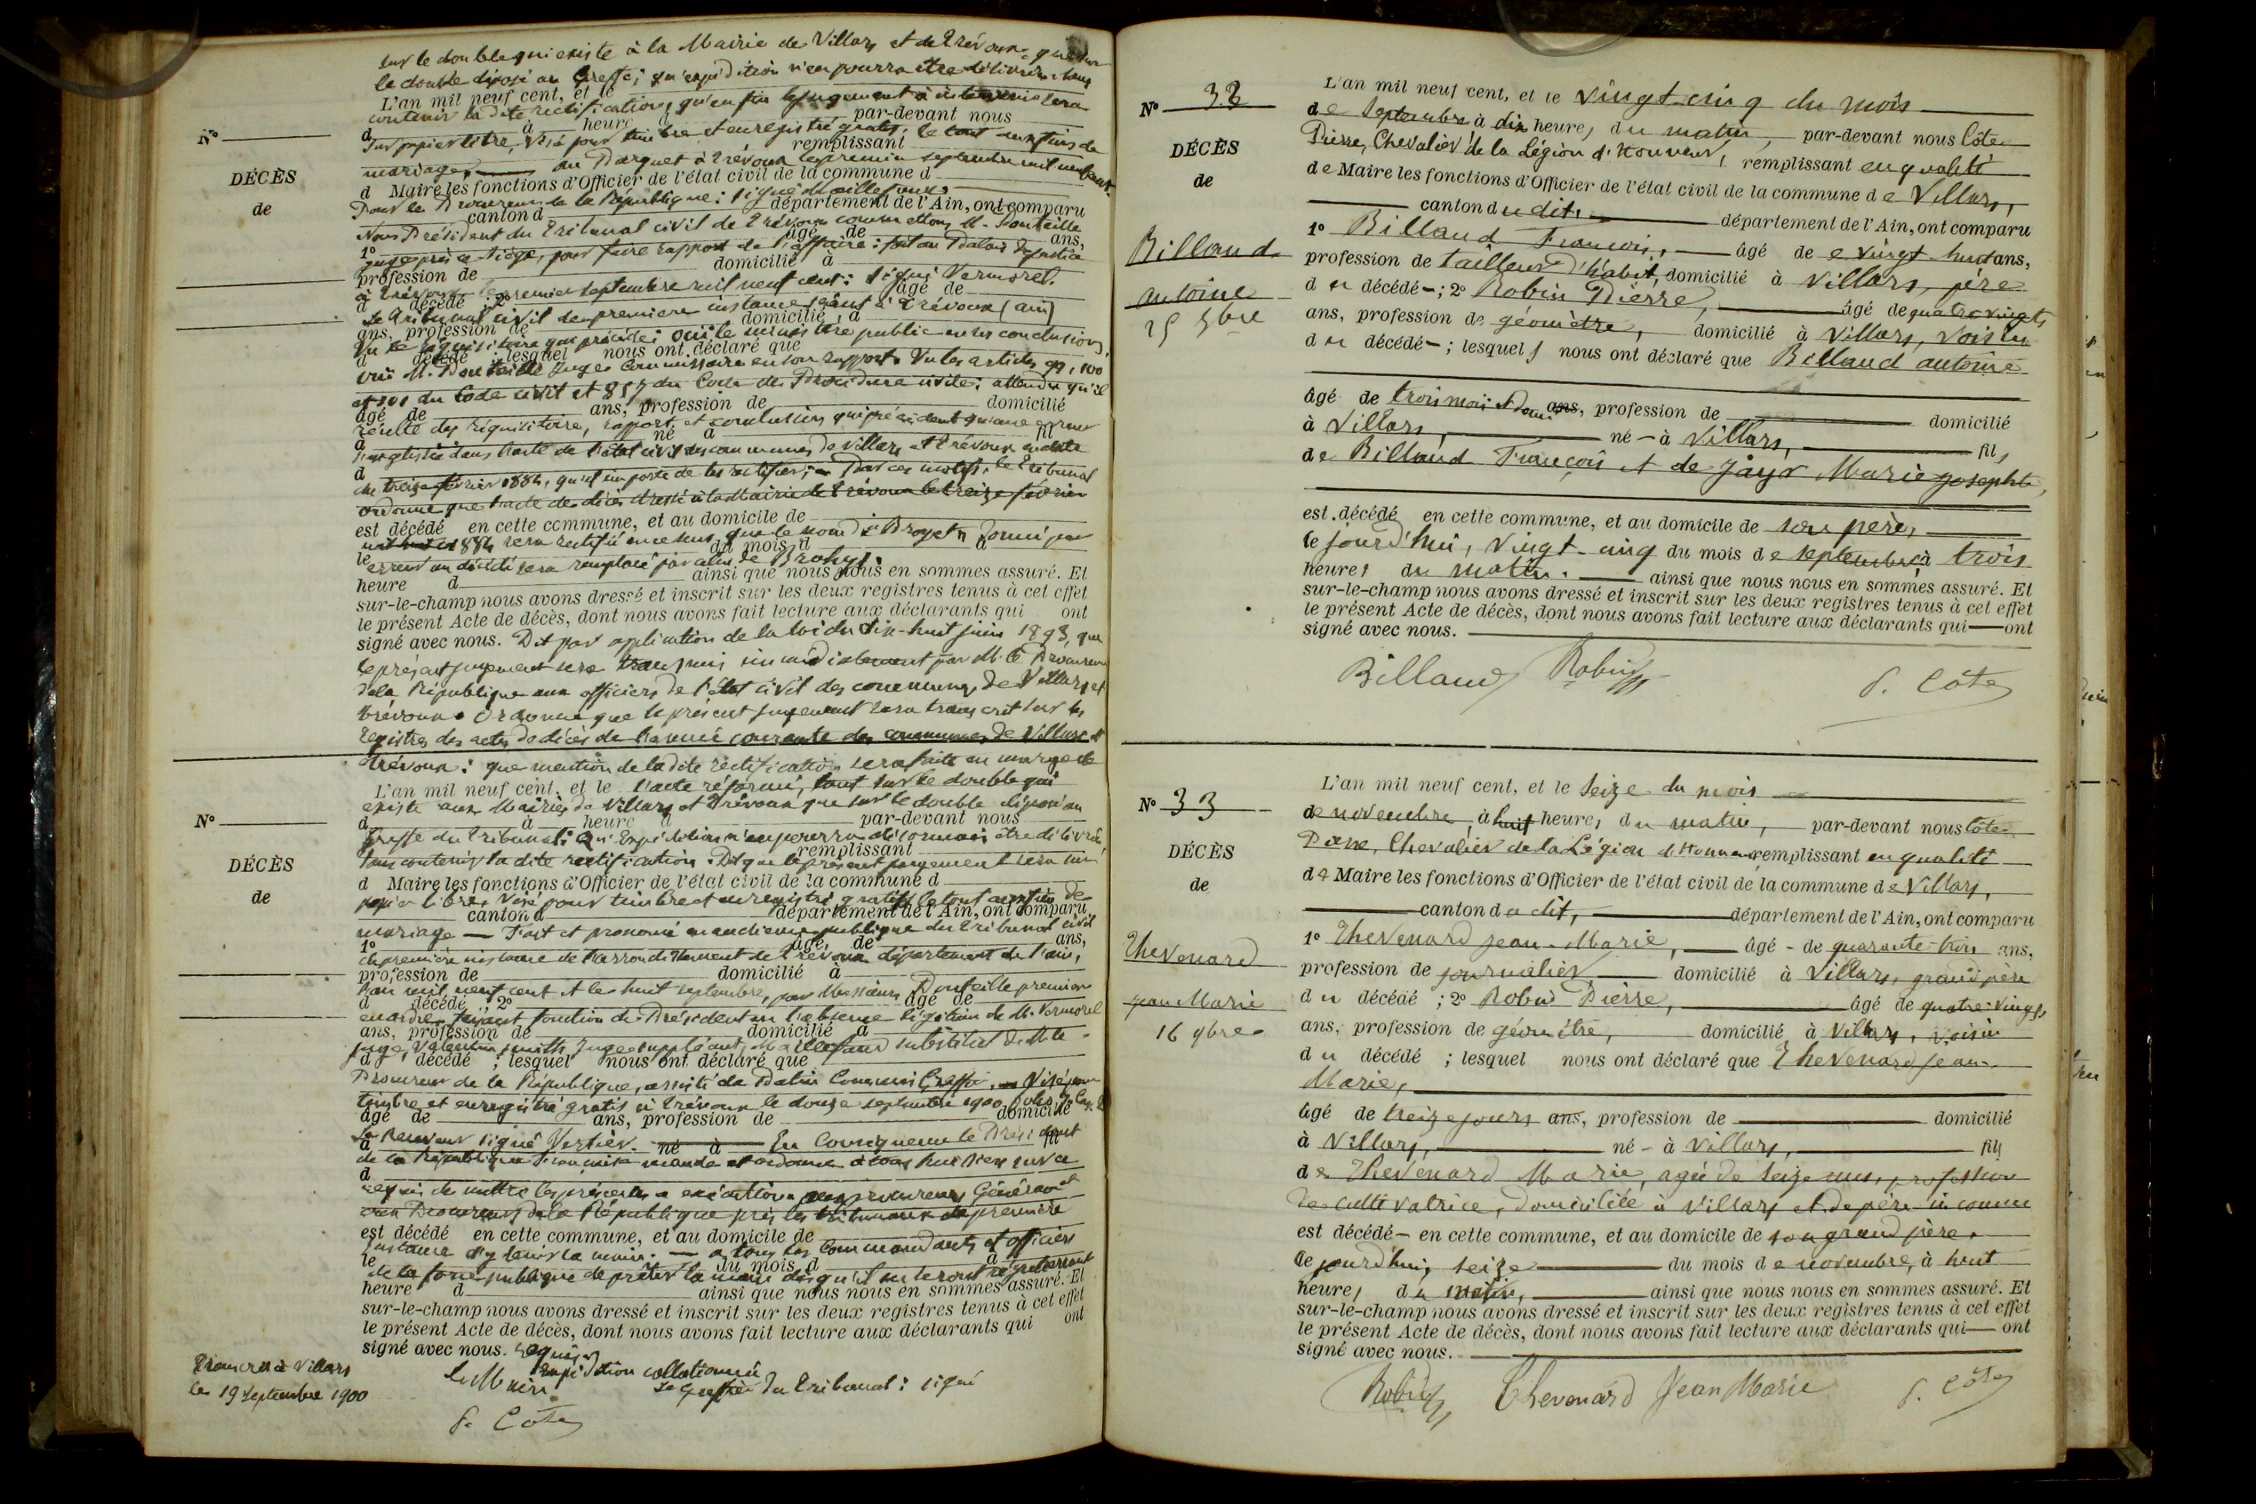 sur le double qui existe à la Mairie de Villars et de Trévoux que sur
le double déposé au Greffe; qu'expédition n'en pourra être délivrée sans
L'an mil neuf cent, et le
contenir la dite rectification, qu'enfin le jugement à intervenir sera
N° d à heure d par-devant nous
sur papier libre, visé pour timbre et enregistré gratis, le tout aux fins de
remplissant
mariage, au Parquet à Trévoux le premier septembre mil neuf cent.
DÉCÈS
d Maire les fonctions d'Officier de l'état civil de la commune d
de
Pour le Procureur de la République: signé Maillefaud
canton d département de l'Ain, ont comparu
Nous Président du Tribunal civil de Trévoux commettons M. Donteille
1° âgé de ans,
juge près ce siège, pour faire rapport de l'affaire: fait au Palais de justice
profession de domicilié à
à Trévoux le premier septembre mil neuf cent: signé Vermorel.
d décédé; 2° âgé de
Le Tribunal civil de première instance séant à Trévoux (Ain)
ans, profession de domicilié à
Vu le réquisitoire qui précède; Ouï le ministère public en ses conclusions,
d décédé; lesquel nous ont déclaré que
ouï M. Donteille Juge Commissaire en son rapport. Vu les articles 99, 100
et 101 du Code civil et 857 du Code de Procédure civile; attendu qu'il
âgé de ans, profession de domicilié
résulte des réquisitoire, rapport, et conclusions qui précèdent qu'une erreur
à né à fil
s'est glissée dans l'acte de l'état civil des communes de Villars et Trévoux en date
d
du treize février 1884, qu'il importe de les rectifier; Par ces motifs, le Tribunal
ordonne que l'acte de décès dressé à la Mairie de Trévoux le treize février
est décédé en cette commune, et au domicile de
mil huit cent 1884 sera rectifié en ce sens, que le nom de Broyet donné par
le du mois d à
erreur au décédé sera remplacé par celui de Brohyt.
heure d ainsi que nous nous en sommes assuré. Et
sur-le-champ nous avons dressé et inscrit sur les deux registres tenus à cet effet
le présent Acte de décès, dont nous avons fait lecture aux déclarants qui ont
signé avec nous. Dit par application de la loi du dix-huit juin 1893, que
le présent jugement sera transmis immédiatement par M. le Procureur
de la République aux officiers de l'état civil des communes de Villars et
Trévoux. Ordonne que le présent jugement sera transcrit sur les
registres des actes de décès de l'année courante des communes de Villars et
Trévoux: que mention de la dite rectification sera faite en marge de
L'an mil neuf cent, et le l'acte réformé, tant sur le double qui
existe aux Mairies de Villars et Trévoux que sur le double déposé au
N° d à heure d par-devant nous
Greffe du Tribunal: Qu'expédition n'en pourra désormais être délivrée
remplissant
sans contenir la dite rectification: Dit que le présent jugement sera sur
DÉCÈS
d Maire les fonctions d'Officier de l'état civil de la commune d
de
papier libre, visé pour timbre et enregistré gratis, le tout aux fins de
canton d département de l'Ain, ont comparu
mariage — Fait et prononcé en audience publique du Tribunal civil
1° âgé de ans,
de première instance de l'arrondissement de Trévoux département de l'Ain,
profession de domicilié à
l'an mil neuf cent et le huit septembre, par Messieurs Donteille premier
d décédé 2° âgé de
en ordre faisant fonction de Président en l'absence légitime de M. Vermorel
ans, profession de domicilié à
juge, Valentin Smith Juge suppléant, Maillefaud substitut de M. le
d décédé; lesquel nous ont déclaré que
Procureur de la République, assisté de Dalin Commis Greffier. Visé pour
timbre et enregistré gratis à Trévoux le douze septembre 1900
âgé de ans, profession de domicilié
Le Receveur signé Verrier. En conséquence le Président
à né à fil
de la République Française mande et ordonne à tous huissiers sur ce
d
requis de mettre les présentes à exécution aux procureurs Généraux et
aux Procureurs de la République près les tribunaux de première
est décédé en cette commune, et au domicile de
instance d'y tenir la main. — à tous les commandants et officiers
le du mois d à
de la force publique de prêter la main dès qu'il en seront légalement
heure d ainsi que nous nous en sommes assuré. Et
sur-le-champ nous avons dressé et inscrit sur les deux registres tenus à cet effet
le présent Acte de décès, dont nous avons fait lecture aux déclarants qui ont
signé avec nous. requis
Transcrit à Villars
le 19 Septembre 1900
Le Maire
P. Côte
expédition collationnée
Le Greffier du Tribunal: signé
N° 32
L'an mil neuf cent, et le vingt-cinq du mois
de septembre à dix heures du matin, par-devant nous Côte
DÉCÈS
Pierre, Chevalier de la Légion d'Honneur, remplissant en qualité
de
de Maire les fonctions d'Officier de l'état civil de la commune de Villars,
canton dudit, département de l'Ain, ont comparu
Billaud
antoine
25 7bre
1° Billaud François, âgé de vingt huit ans,
profession de tailleur d'habit, domicilié à Villars, père
du décédé; 2° Robin Pierre, âgé de quatre vingts
ans, profession de géomètre, domicilié à Villars, voisin
du décédé; lesquels nous ont déclaré que Billaud antoine
âgé de trois mois et demi ans, profession de domicilié
à Villars, né à Villars, fils
de Billaud François et de Jayr Marie Josephte,
est décédé en cette commune, et au domicile de son père,
le jourd'hui, vingt-cinq du mois de septembre, à trois
heures du matin. ainsi que nous nous en sommes assuré. Et
sur-le-champ nous avons dressé et inscrit sur les deux registres tenus à cet effet
le présent Acte de décès, dont nous avons fait lecture aux déclarants qui ont
signé avec nous.
Billaud Robin P. Côte
N° 33
L'an mil neuf cent, et le Seize du mois
de novembre, à huit heures du matin, par-devant nous Côte
DÉCÈS
Pierre, Chevalier de la Légion d'Honneur, remplissant en qualité
de
de Maire les fonctions d'Officier de l'état civil de la commune de Villars,
canton dudit, département de l'Ain, ont comparu
Thevenard
jean Marie
16 9bre
1° Thevenard jean-Marie, âgé de quarante-trois ans,
profession de journalier domicilié à Villars, grand père
du décédé; 2° Robin Pierre, âgé de quatre-vingts
ans, profession de géomètre, domicilié à Villars, voisin
du décédé; lesquel nous ont déclaré que Thevenard jean-
Marie,
âgé de treize jours ans, profession de domicilié
à Villars, né à Villars, fils
de Thevenard Marie, agée de seize ans, profession
de cultivatrice, domiciliée à Villars et de père inconnu
est décédé en cette commune, et au domicile de son grand père,
le jourd'hui, seize du mois de novembre, à huit
heures du matin, ainsi que nous nous en sommes assuré. Et
sur-le-champ nous avons dressé et inscrit sur les deux registres tenus à cet effet
le présent Acte de décès, dont nous avons fait lecture aux déclarants qui ont
signé avec nous.
Robin Thevenard Jean Marie P. Côte